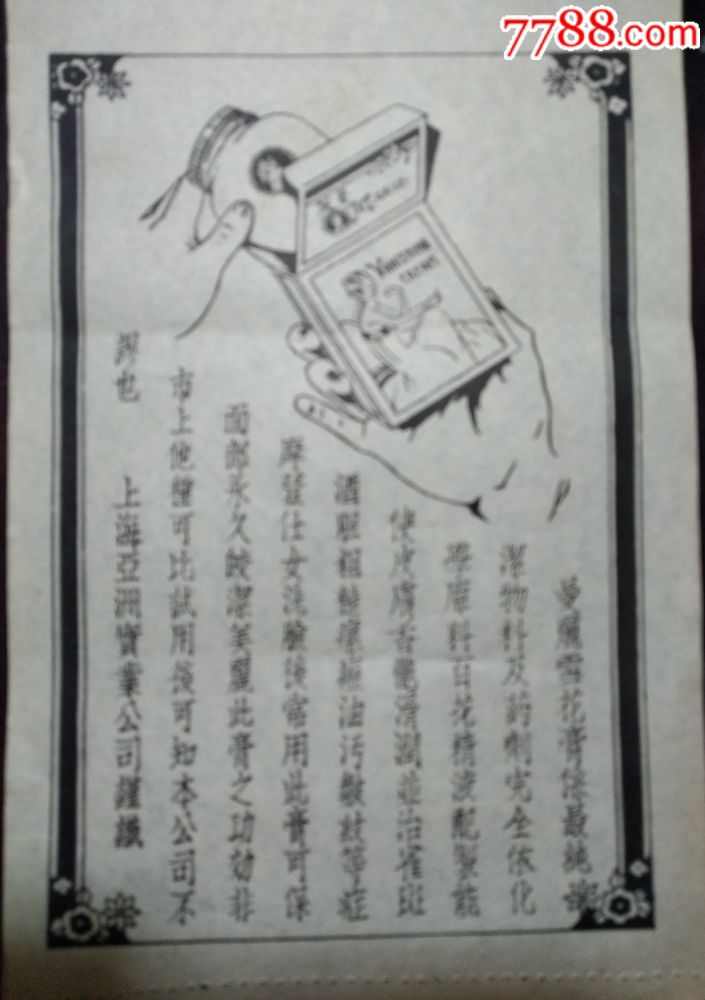 7788.com
VANISHING
CREAM
曼麗雪花膏係最純
潔物料及药劑完全依化
學原料百花精液配製能
使皮膚香艷滑潤並治雀斑
酒刺粗糙瘰 油污皺紋等症
摩登仕女洗臉後常用此膏可保
面部永久皎潔美麗此膏之功効非
市上他種可比試用後可知本公司不
謬也 上海亞洲實業公司謹識